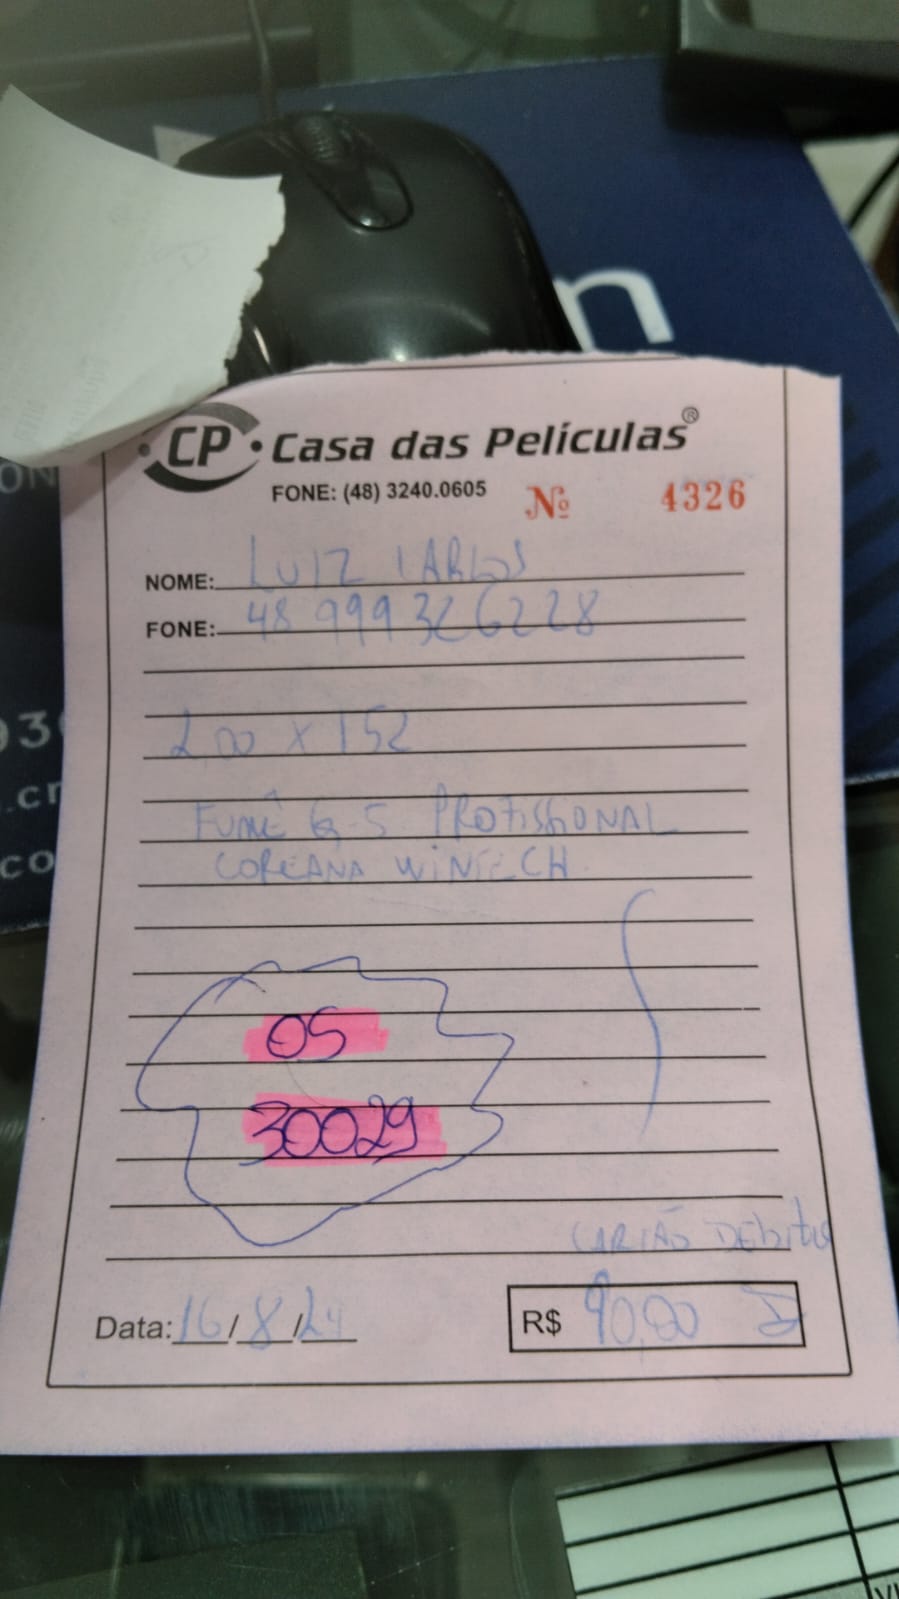 n
CP • Casa das Películas®
FONE: (48) 3240.0605 Nº 4326
NOME: LUIZ CARLOS
FONE: 48 999326228
2,00 x 152
FUMÊ G-5 PROFISSIONAL
COREANA WINTECH.
OS
30029
CARTÃO DEbito
Data: 16/8/24 R$ 90,00